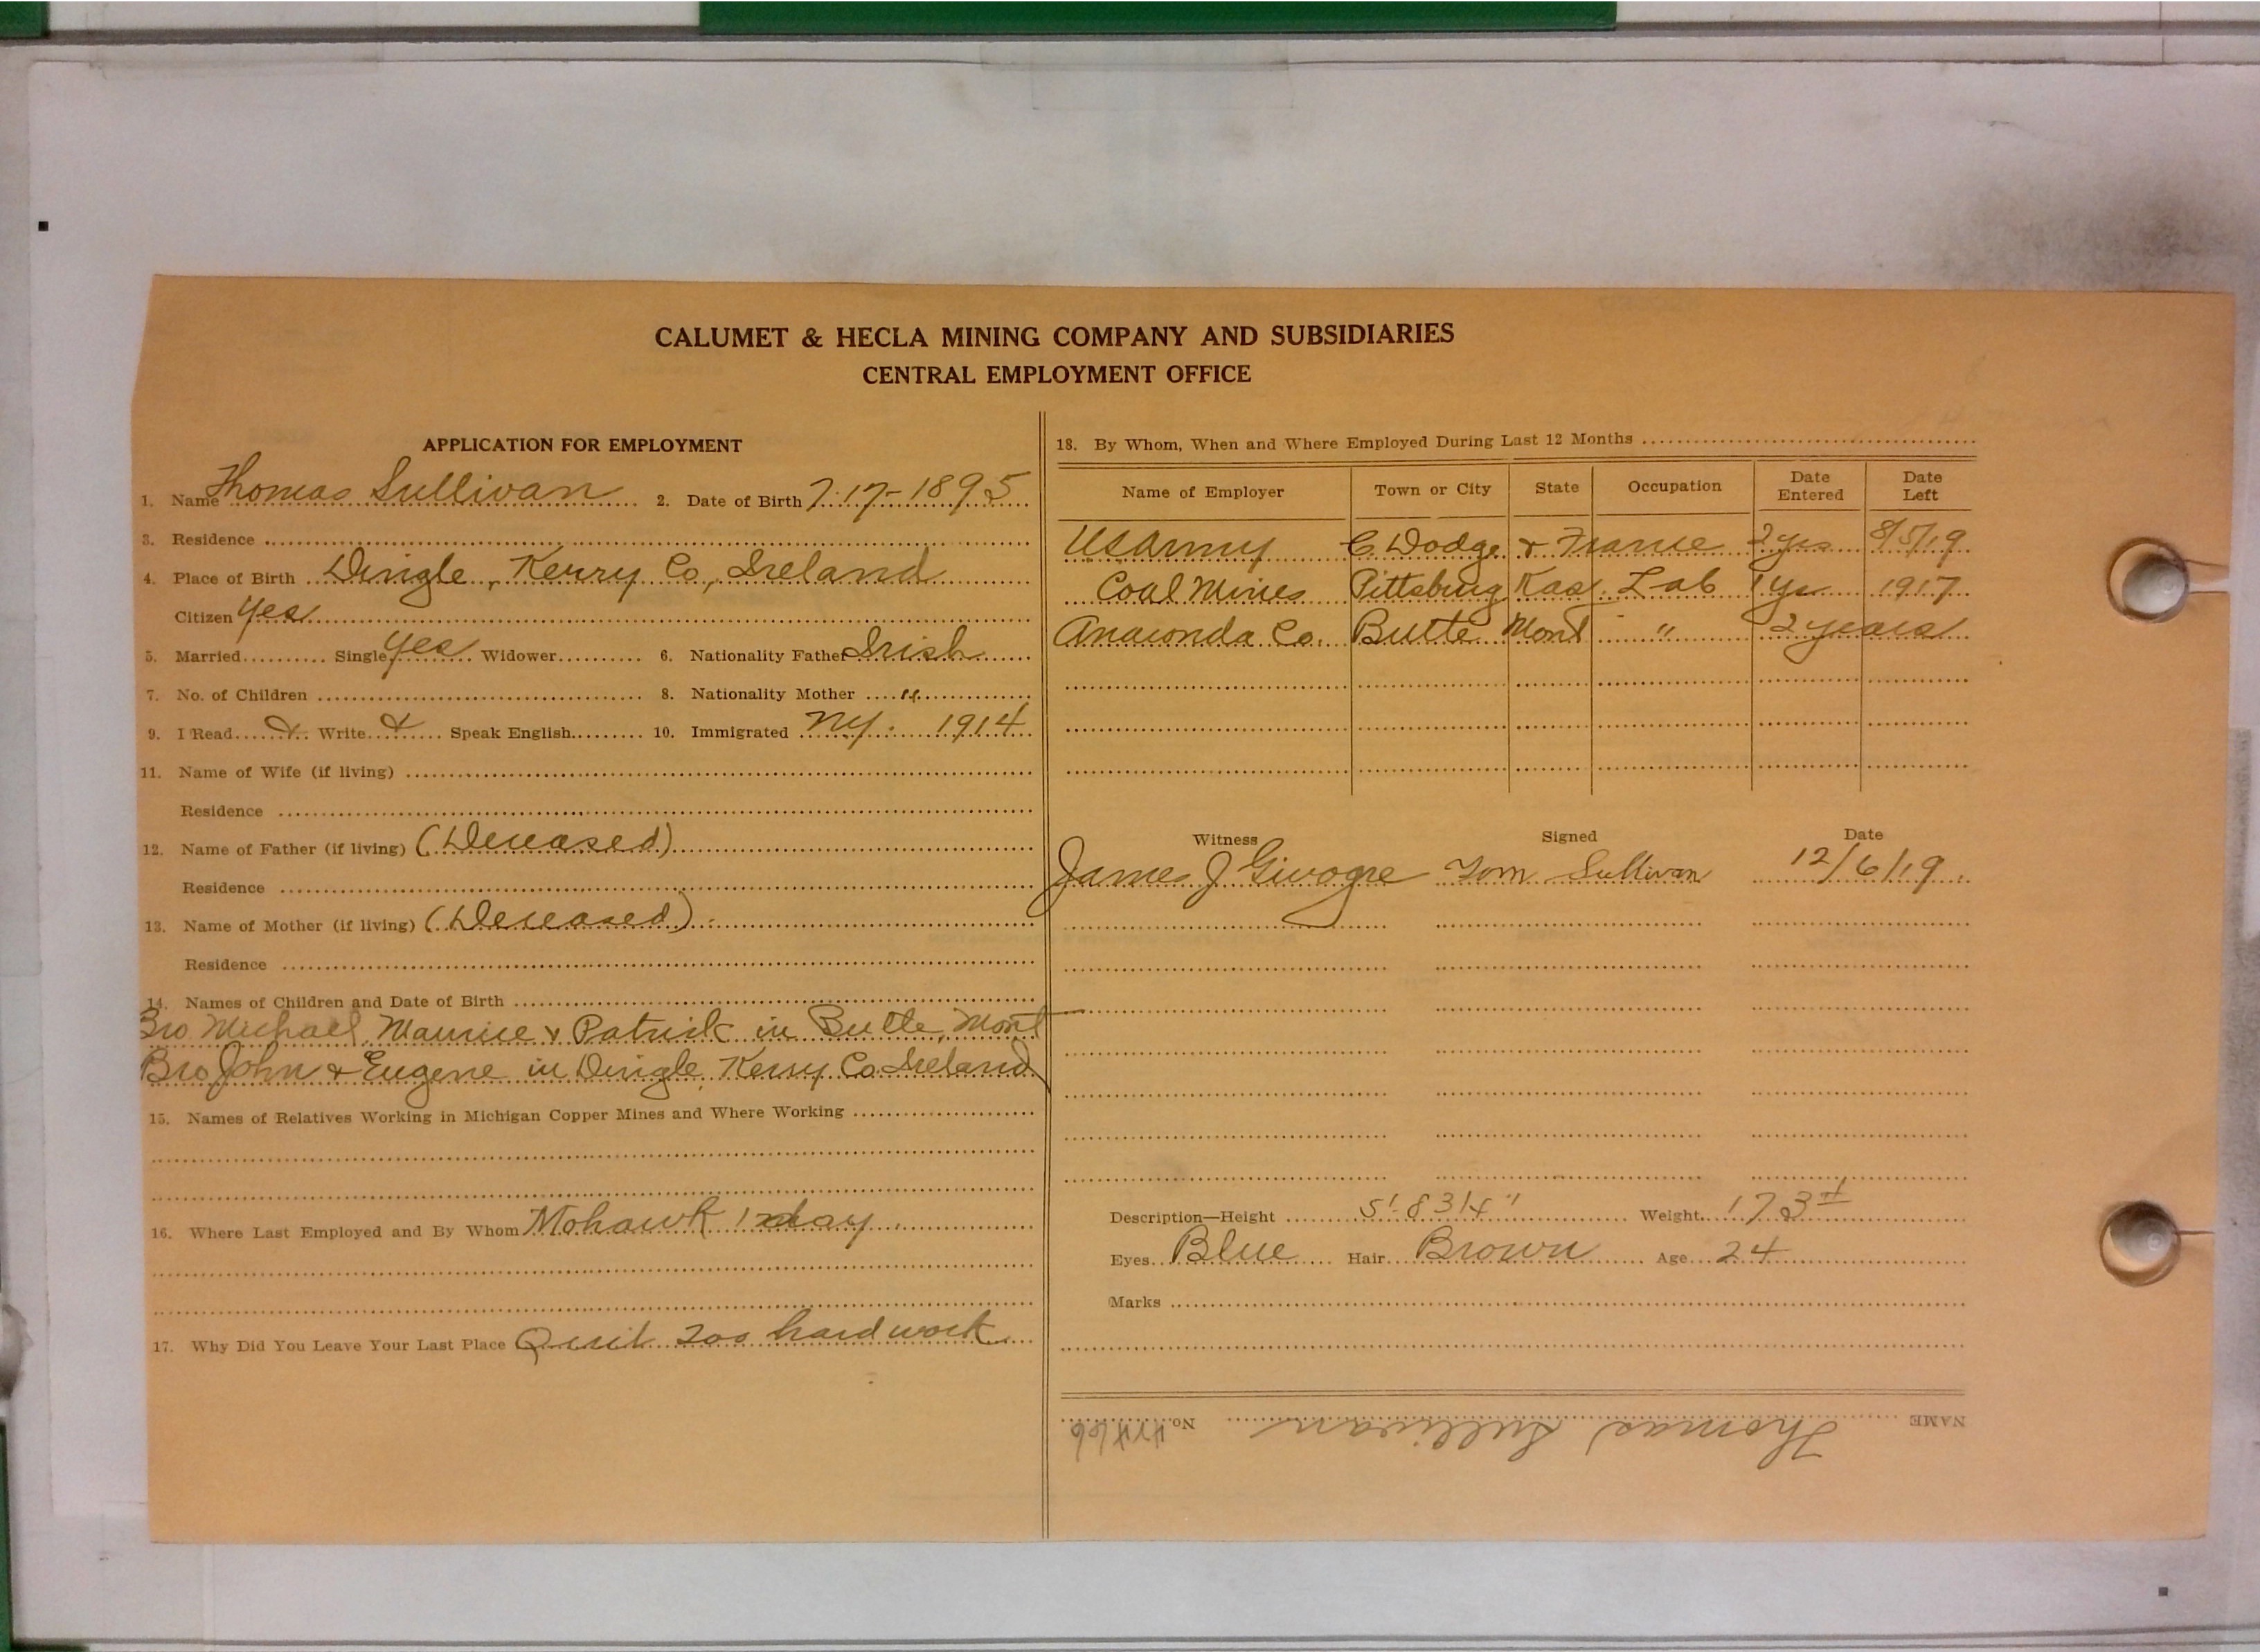 CALUMET & HECLA MINING COMPANY AND SUBSIDIARIES
CENTRAL EMPLOYMENT OFFICE
APPLICATION FOR EMPLOYMENT
1. Name Thomas Sullivan 2. Date of Birth 7-17-1895
3. Residence
4. Place of Birth Dingle, Kerry Co, Ireland
Citizen Yes
5. Married Single Yes Widower 6. Nationality Father Irish
7. No. of Children 8. Nationality Mother "
9. I Read & Write & Speak English 10. Immigrated NY. 1914
11. Name of Wife (if living)
Residence
12. Name of Father (if living) (Deceased)
Residence
13. Name of Mother (if living) (Deceased)
Residence
14. Names of Children and Date of Birth
Bro Michael, Maurice & Patrick in Butte, Mont
Bro John & Eugene in Dingle, Kerry Co. Ireland
15. Names of Relatives Working in Michigan Copper Mines and Where Working
16. Where Last Employed and By Whom Mohawk 1 day
17. Why Did You Leave Your Last Place Quit too hard work
18. By Whom, When and Where Employed During Last 12 Months
Name of Employer Town or City State Occupation Date Entered Date Left
US Army C Dodge & France 2 yrs 8/5/19
Coal Mines Pittsburg Kas. Lab 1 yr 1917
Anaconda Co. Butte Mont " 2 years
Witness Signed Date
James J Tom Sullivan 12/6/19
Description—Height 5' 8 3/4" Weight 173#
Eyes Blue Hair Brown Age 24
Marks
NAME Thomas Sullivan No.